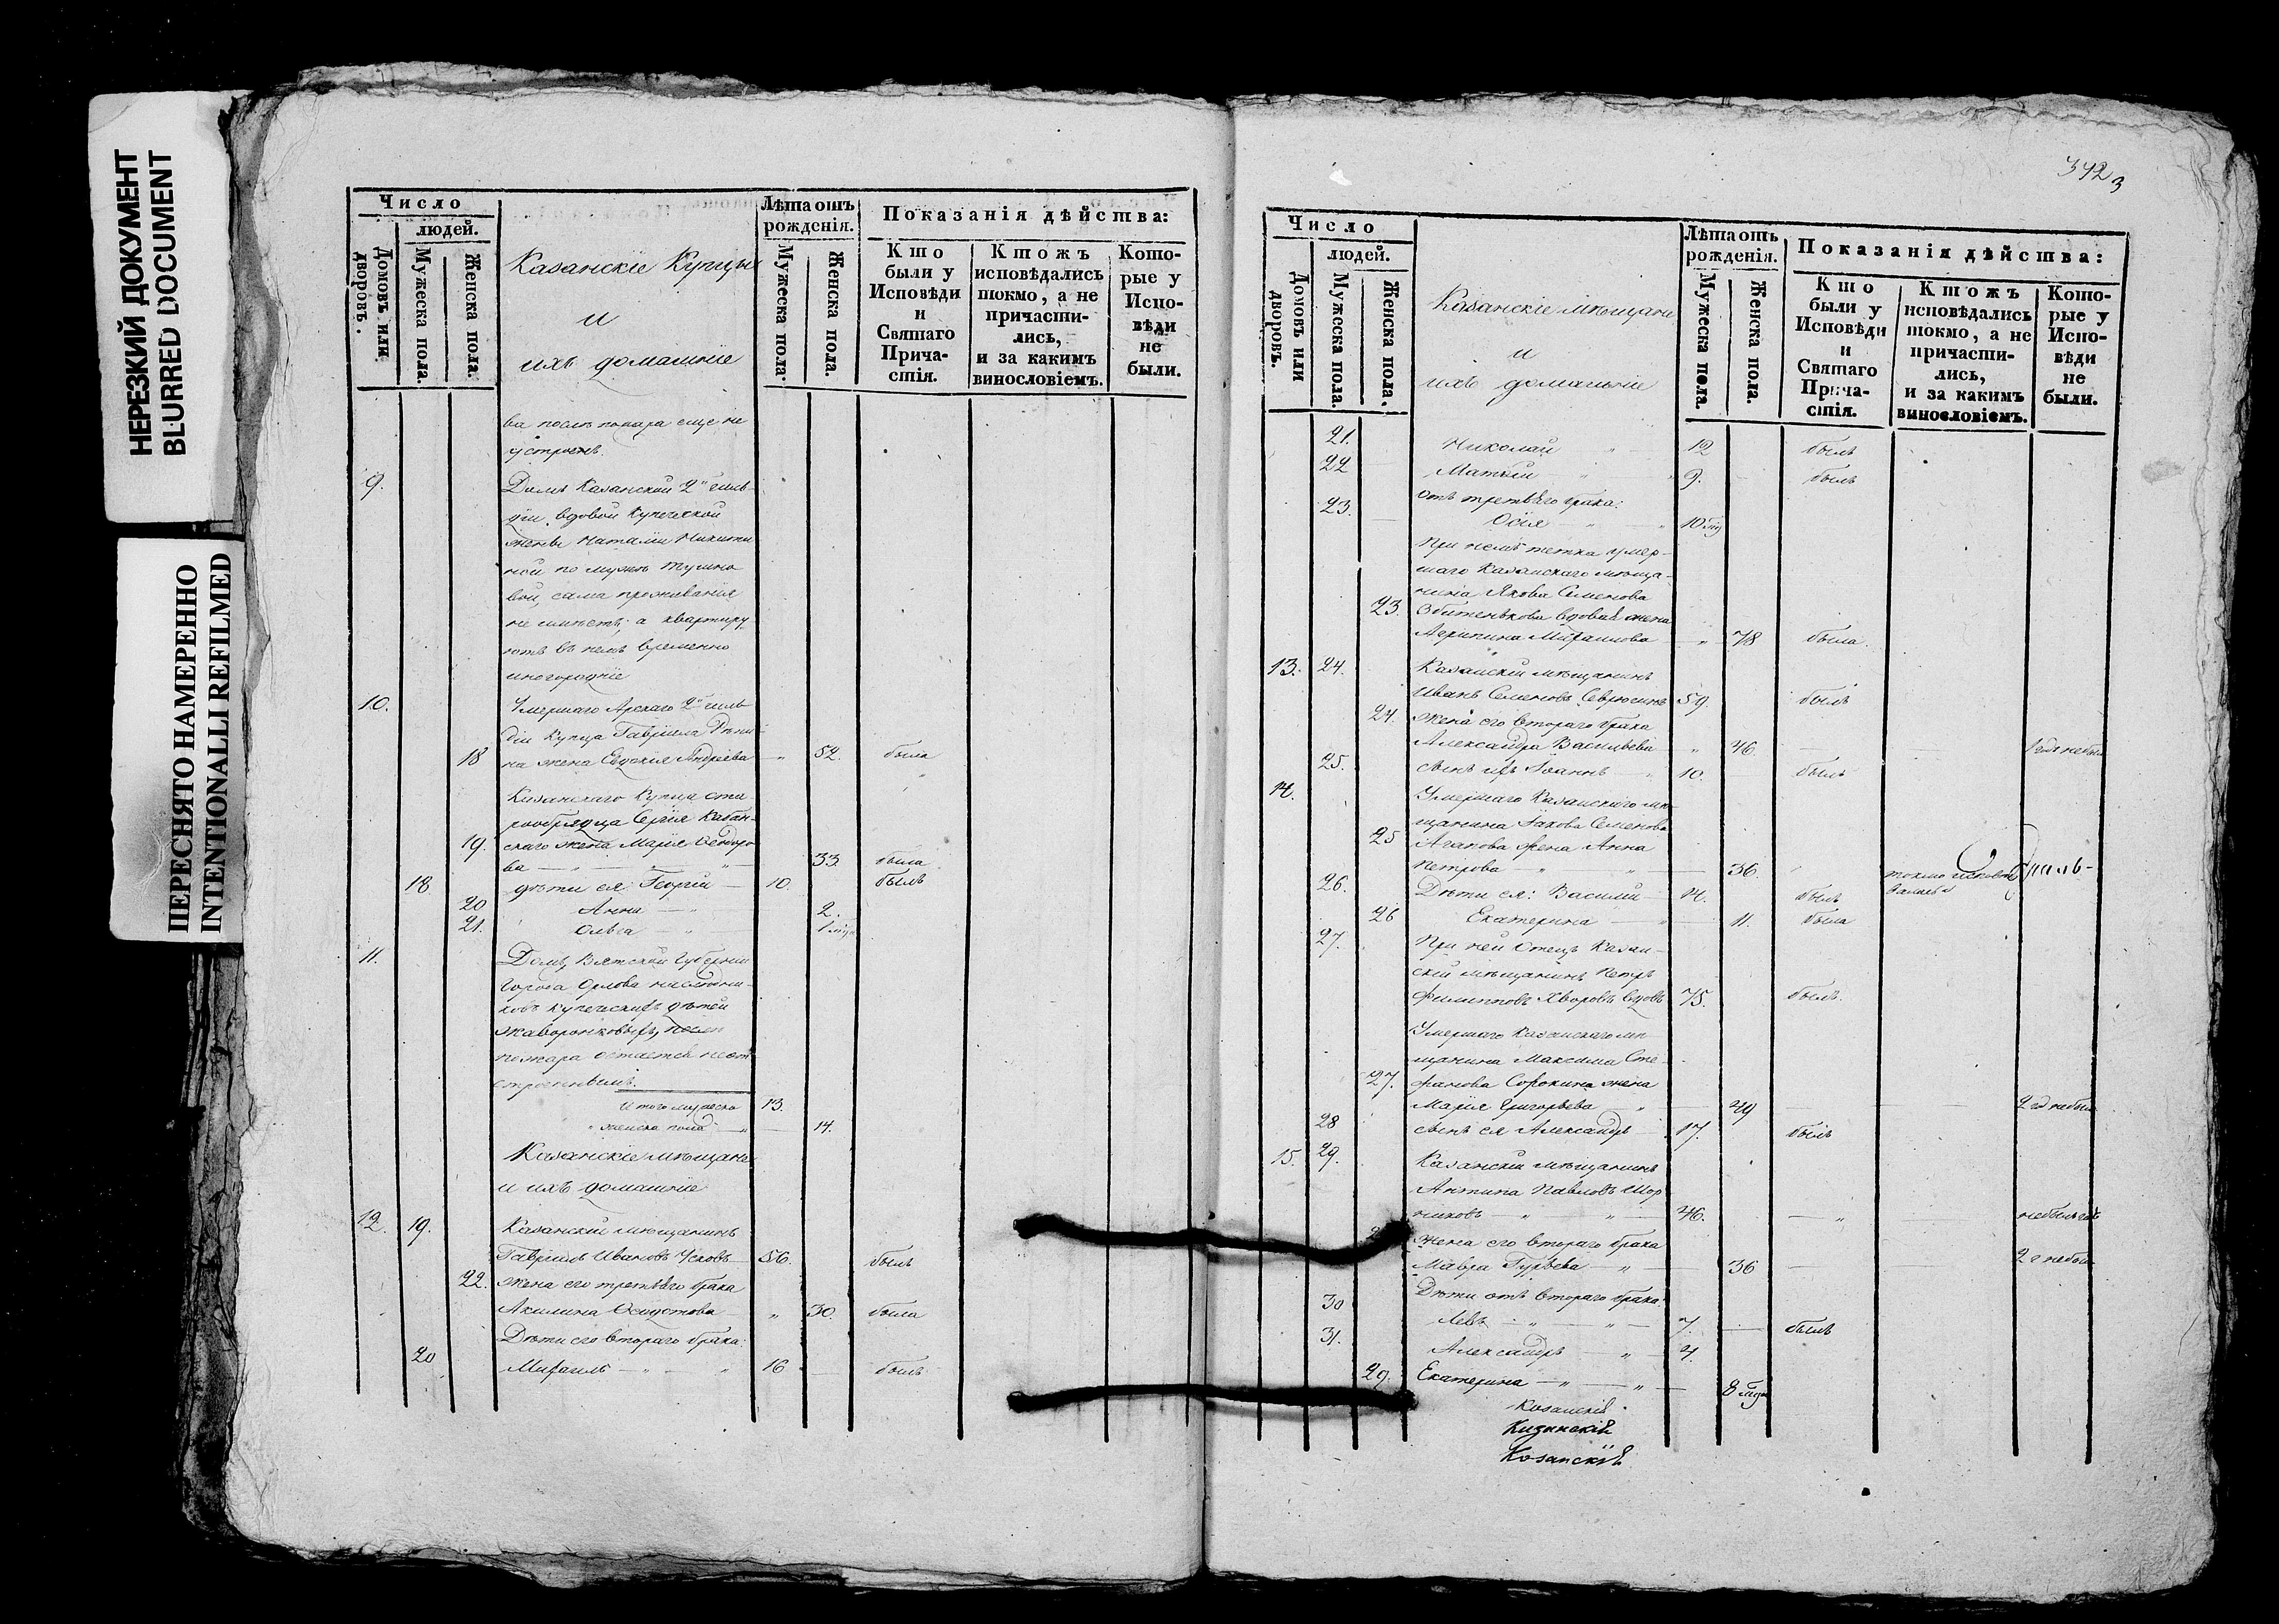 НЕРЕЗКИЙ ДОКУМЕНТ
BLURRED DOCUMENT
ПЕРЕСНЯТО НАМЕРЕННО
INTENTIONALLI REFILMED
Число
людей.
Домовъ или дворовъ.
Мужеска пола.
Женска пола.
Казанскіе Купцы
и
ихъ домашніе
Лѣта отъ рожденія.
Мужеска пола.
Женска пола.
Показанія дѣйства:
Кто были у Исповѣди и Святаго Причастія.
Ктожъ исповѣдались токмо, а не причастились, и за какимъ винословіемъ.
Которые у Исповѣди не были.
ва послѣ пожара еще не
устроенъ.
9. Домъ Казанской 2й гиль-
діи вдовой Купеческой
жены Наталіи Никити
ной по мужѣ
вой, сама проживанія
не имѣетъ, а квартиру
ютъ въ немъ временно
иногородніе
10. Умершаго Арскаго 2й гиль
діи Купца Гавріила
18 на жена Евдокія Андреева 52. была
Казанскаго Купца ста
рообрядца Сергія Кабан-
19. скаго жена Марія Ѳеодоро
ва 33. была
18. дѣти ея: Георгій 10. былъ
20 Анна 2.
21. Ольга 1
11. Домъ, Вятской Губерніи
города Орлова наслѣдни-
ковъ купеческихъ дѣтей
Жаворонковыхъ, послѣ
пожара остается неот
строеннымъ.
Итого мужеска 13.
женска пола 14.
Казанскіе мѣщане
и ихъ домашніе
12. 19. Казанскій мѣщанинъ
Гавріилъ Ивановъ Усковъ 56. былъ
22. жена его третьяго брака
Акилина Ѳеодотова 30. была
Дѣти его втораго брака:
20 Михаилъ 16 былъ
342
3
Число
людей.
Домовъ или дворовъ.
Мужеска пола.
Женска пола.
Казанскіе мѣщане
и
ихъ домашніе
Лѣта отъ рожденія.
Мужеска пола.
Женска пола.
Показанія дѣйства:
Кто были у Исповѣди и Святаго Причастія.
Ктожъ исповѣдались токмо, а не причастились, и за какимъ винословіемъ.
Которые у Исповѣди не были.
21. Николай 12 былъ
22 Матвѣй 9. былъ
отъ третьяго брака:
23. Осія 10
При немъ тетка умер-
шаго Казанскаго мѣща-
нина Якова Семенова
23. вдовая жена
Агрипина Михаилова 78 была.
13. 24. Казанскій мѣщанинъ
Иванъ Семеновъ Севрюгинъ 59. былъ
24. жена его втораго брака
Александра Васильева 46
25. сынъ ихъ Іоаннъ 10. былъ
14. Умершаго Казанскаго мѣ-
щанина Іакова Семенова
25 Агапова жена Анна
Петрова 36.
26. Дѣти ея: Василій 14. былъ
26 Екатерина 11. была
27. При ней отецъ Казан-
скій мѣщанинъ Петръ
Филипповъ Хворовъ вдовъ 75. былъ.
Умершаго Казанскаго мѣ
щанина Максима Сте
27. фанова Сорокина жена
Марія Григорьева 49
28 сынъ ея Александръ 17. былъ
15. 29. Казанскій мѣщанинъ
Антипа Павловъ Шор
никовъ 46.
жена его втораго брака
Мавра Гурьева 36
Дѣти отъ втораго брака:
30 Левъ 7. былъ
31. Александръ 4.
29. Екатерина 8
Козанскіе
Кизанскій
Козанскій